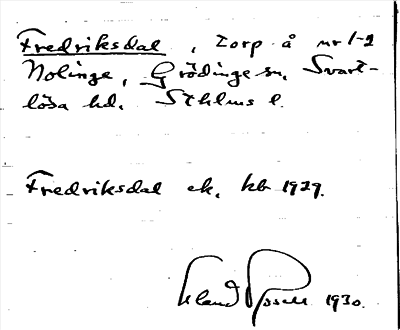 Fredriksdal, torp å nr 1-2
Nolinge, Grödinge sn, Svart-
lösa hd. Sthlms l.
Fredriksdal ek. kb 1929.
Erland Rosell 1930.